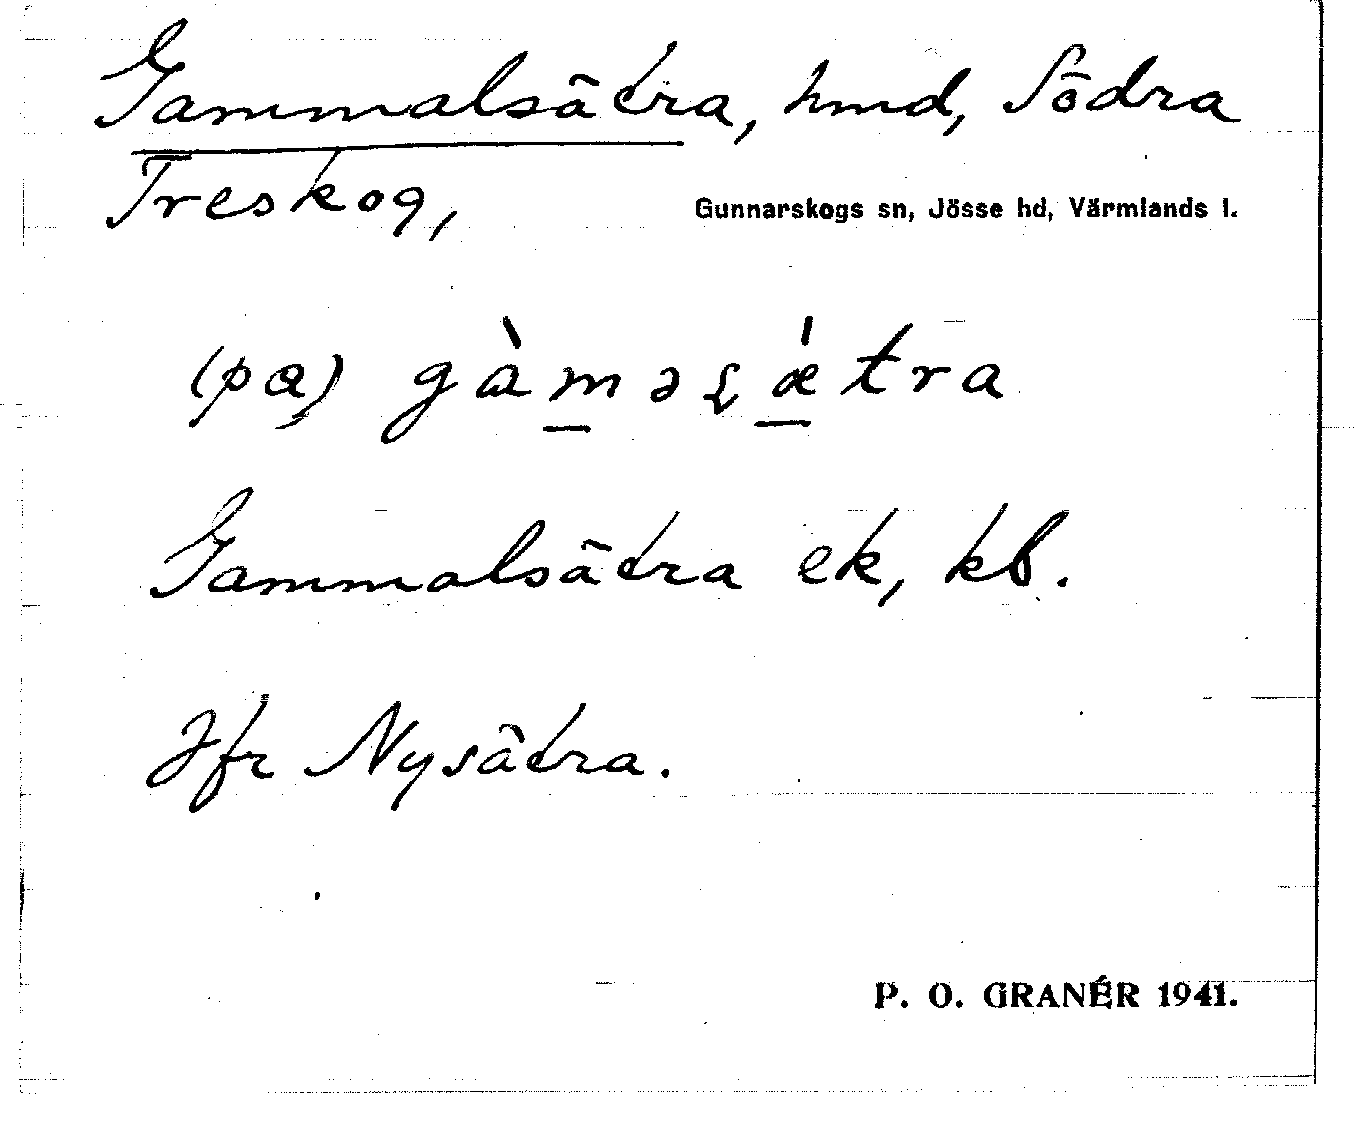 Gammalsätra, hmd, Södra
Treskog,
Gunnarskogs sn, Jösse hd, Värmlands l.
(pa) gàm̲əʂǽ̲tra
Gammalsätra ek, kb.
Jfr Nysätra.
P. O. GRANÉR 1941.